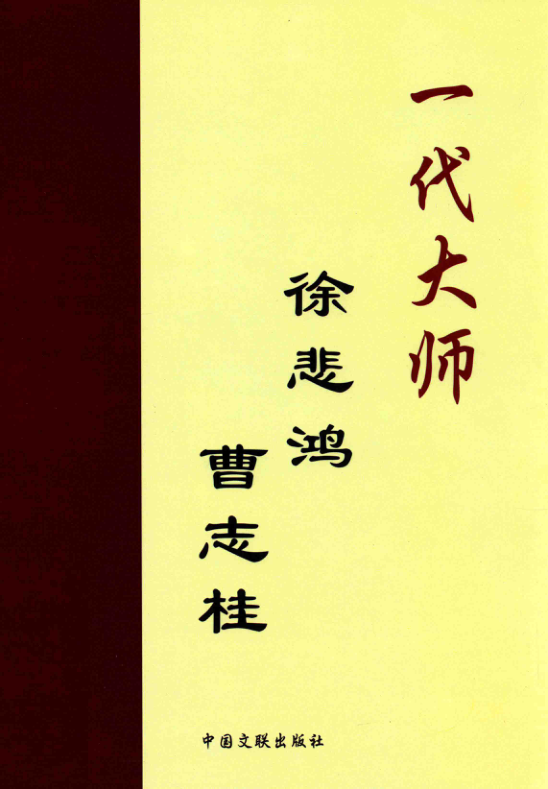 一代大师
徐悲鸿
曹志桂
中国文联出版社